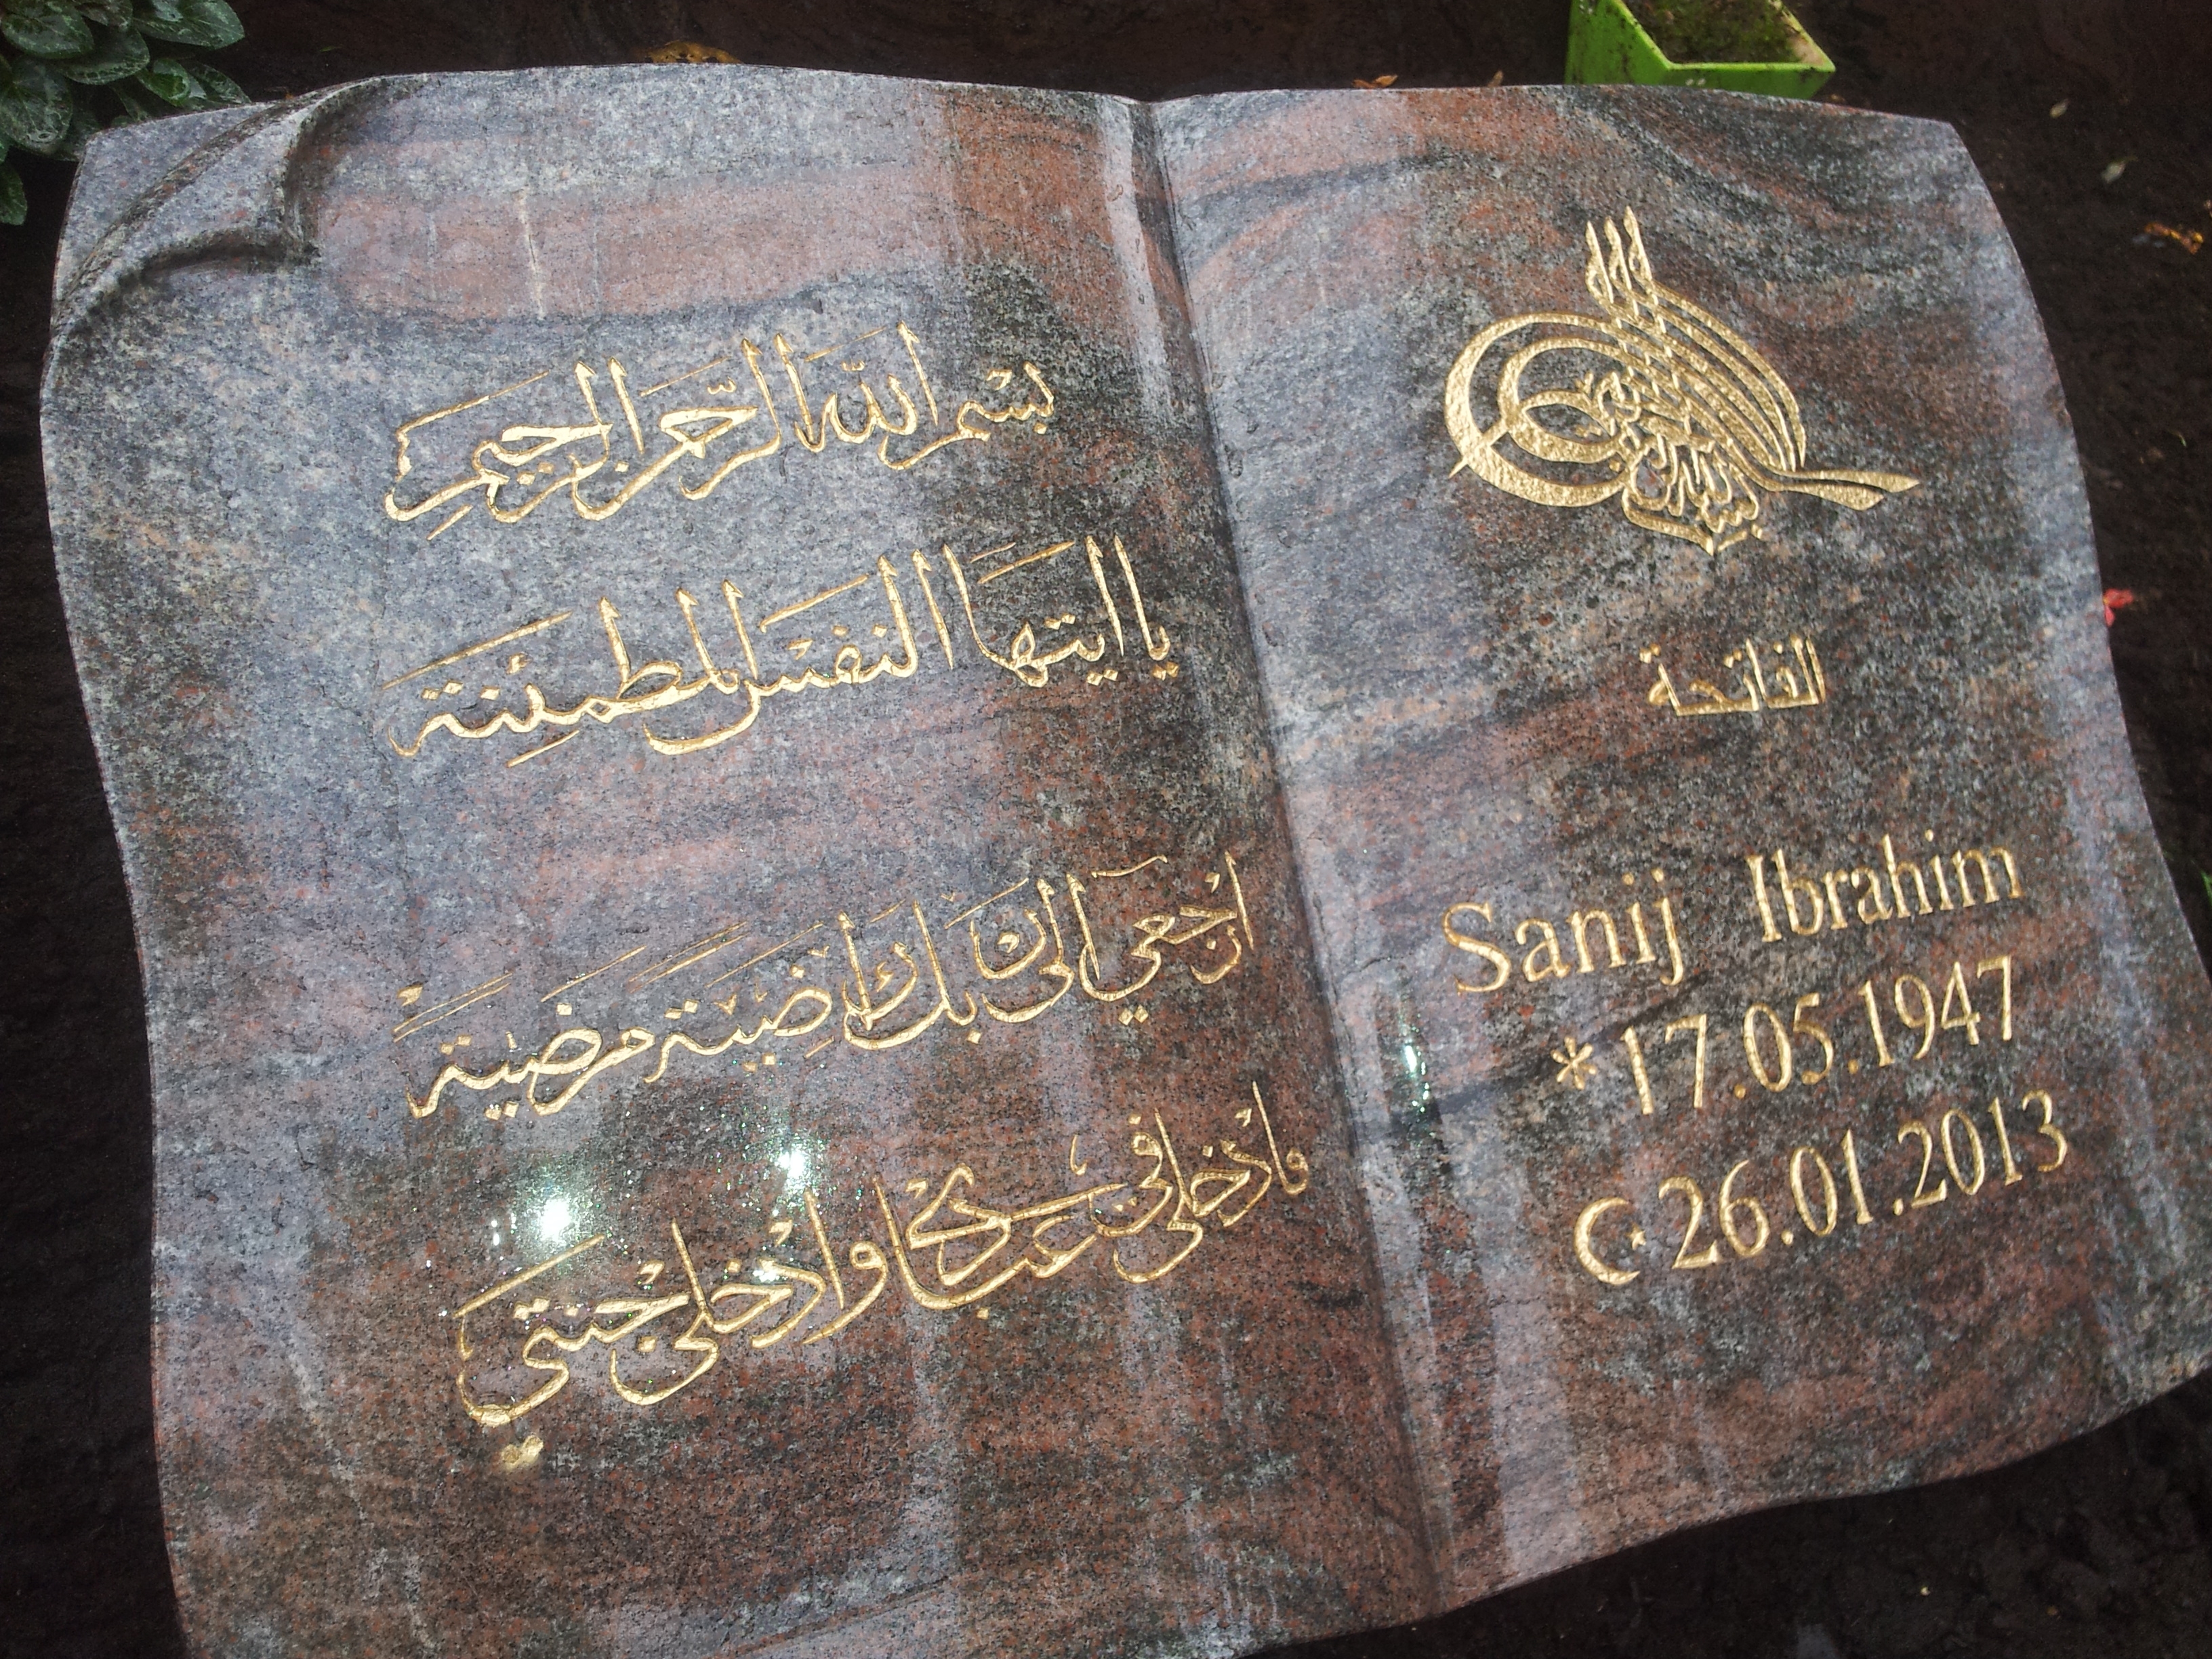 بسْم اللّه الرّحمن الرحيم
يا ايتها النفسْ المطمئنة
ارْجعي الى ربك راضية مرضية
فادْخلي في عبادي وادْخلي جنتي
الفاتحة
Sanij Ibrahim
* 17.05.1947
☪ 26.01.2013